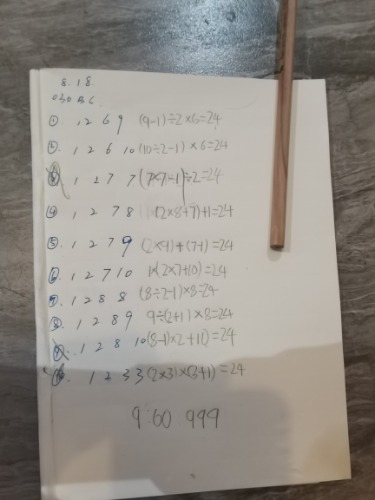 8.18.
① 1 2 6 9 (9-1)÷2×6=24
②. 1 2 6 10 (10÷2-1)×6=24
③. 1 2 7 7 (7×7-1)÷2=24
④ 1 2 7 8 (2×8+7)+1=24
⑤. 1 2 7 9 (2×9)+(7-1)=24
⑥. 1 2 7 10 1×(2×7+10)=24
⑦. 1 2 8 8 (8÷2-1)×8=24
⑧. 1 2 8 9 9÷(2+1)×8=24
⑨. 1 2 8 10 (8-1)×2+10=24
⑩. 1 2 3 3 (2×3)×(3+1)=24
9:60 999